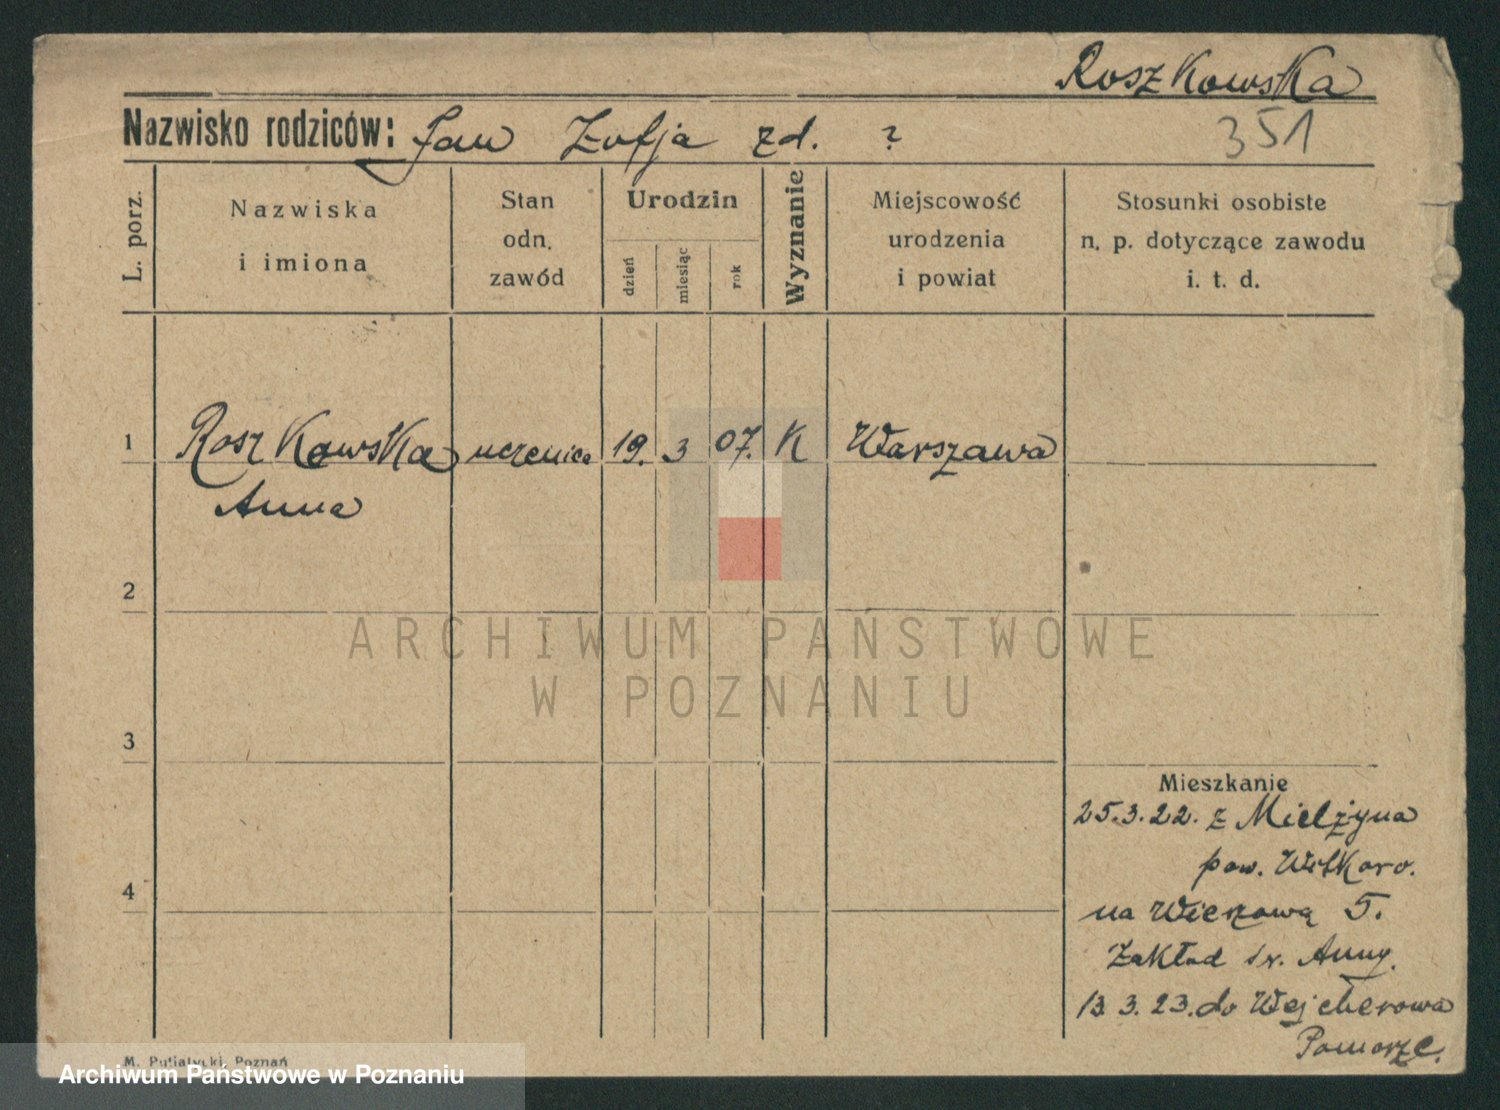 Roszkowska
Nazwisko rodziców: Jan Zofja zd. ?
351
L. porz.
Nazwiska
i imiona
Stan
odn.
zawód
Urodzin
dzień
miesiąc
rok
Wyznanie
Miejscowość
urodzenia
i powiat
Stosunki osobiste
n. p. dotyczące zawodu
i. t. d.
1 Roszkowska uczenica 19. 3 07. K Warszawa
Anna
2
3
4
ARCHIWUM PAŃSTWOWE
W POZNANIU
Mieszkanie
25.3.22. z Mielżyna
pow. Witkowo.
na Wieżową 5.
Zakład św. Anny.
13.3.23. do Wejcherowa
Pomorze.
M. Putiatycki, Poznań
Archiwum Państwowe w Poznaniu